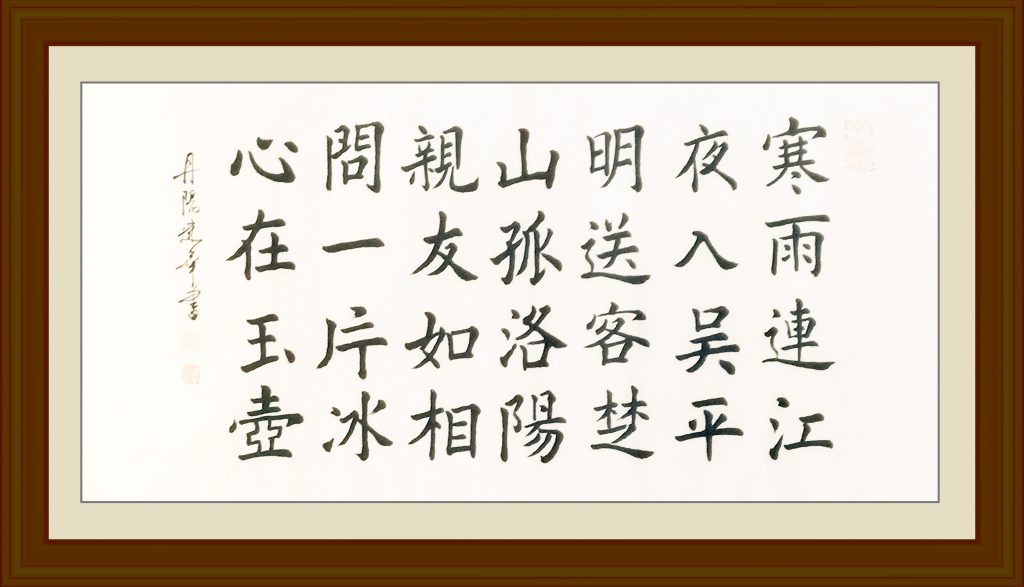 寒雨連江
夜入吴平
明送客楚
山孤洛陽
親友如相
問一片冰
心在玉壺
丹陽建平書